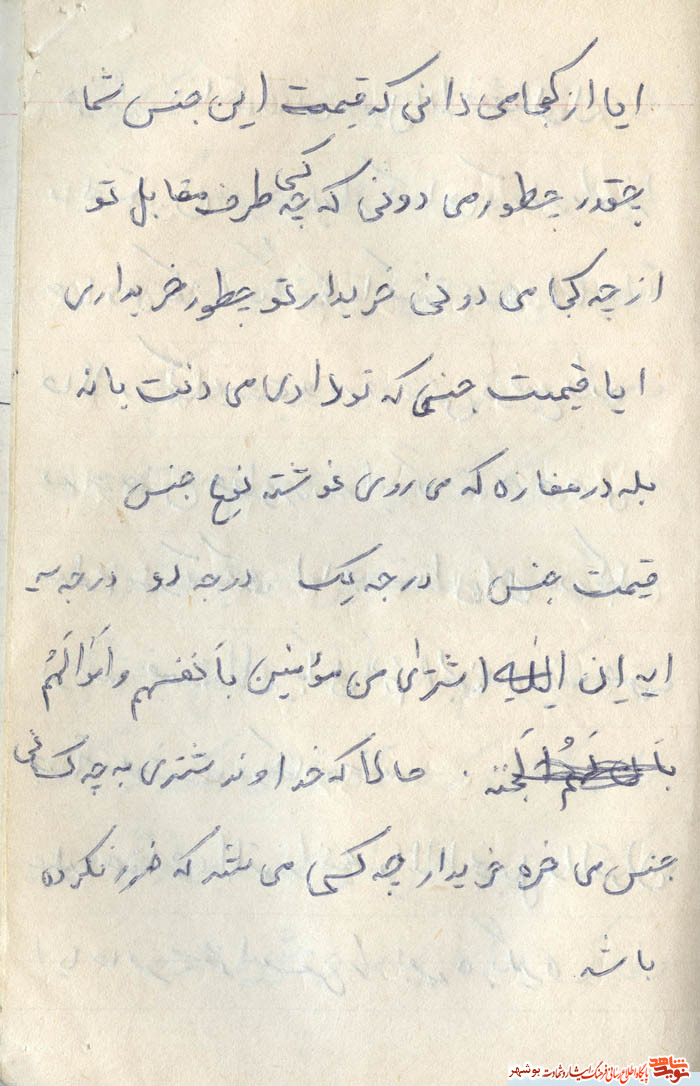 ایا از کجا می دانی که قیمت این جنس شما
چقدر چطور می دونی که چه کسی طرف مقابل تو
از چه کجا می دونی خریدار تو چطور خریداری
ایا قیمت جنسی که تو دادی می دنت یا نه
بله در مغازه که می روی نوشته نوع جنس
قیمت جنس درجه یک درجه دو درجه سه
ایه ان الله اشتری من مؤمنین بأنفسهم وأموالهم
بأن لهم الجنة . حالا که خداوند مشتری به چه کسانی
جنس می خره خریدار چه کسی می شد که ضرر نکرده
باشه
نوید شاهد
پایگاه اطلاع رسانی فرهنگ ایثار و شهادت بوشهر